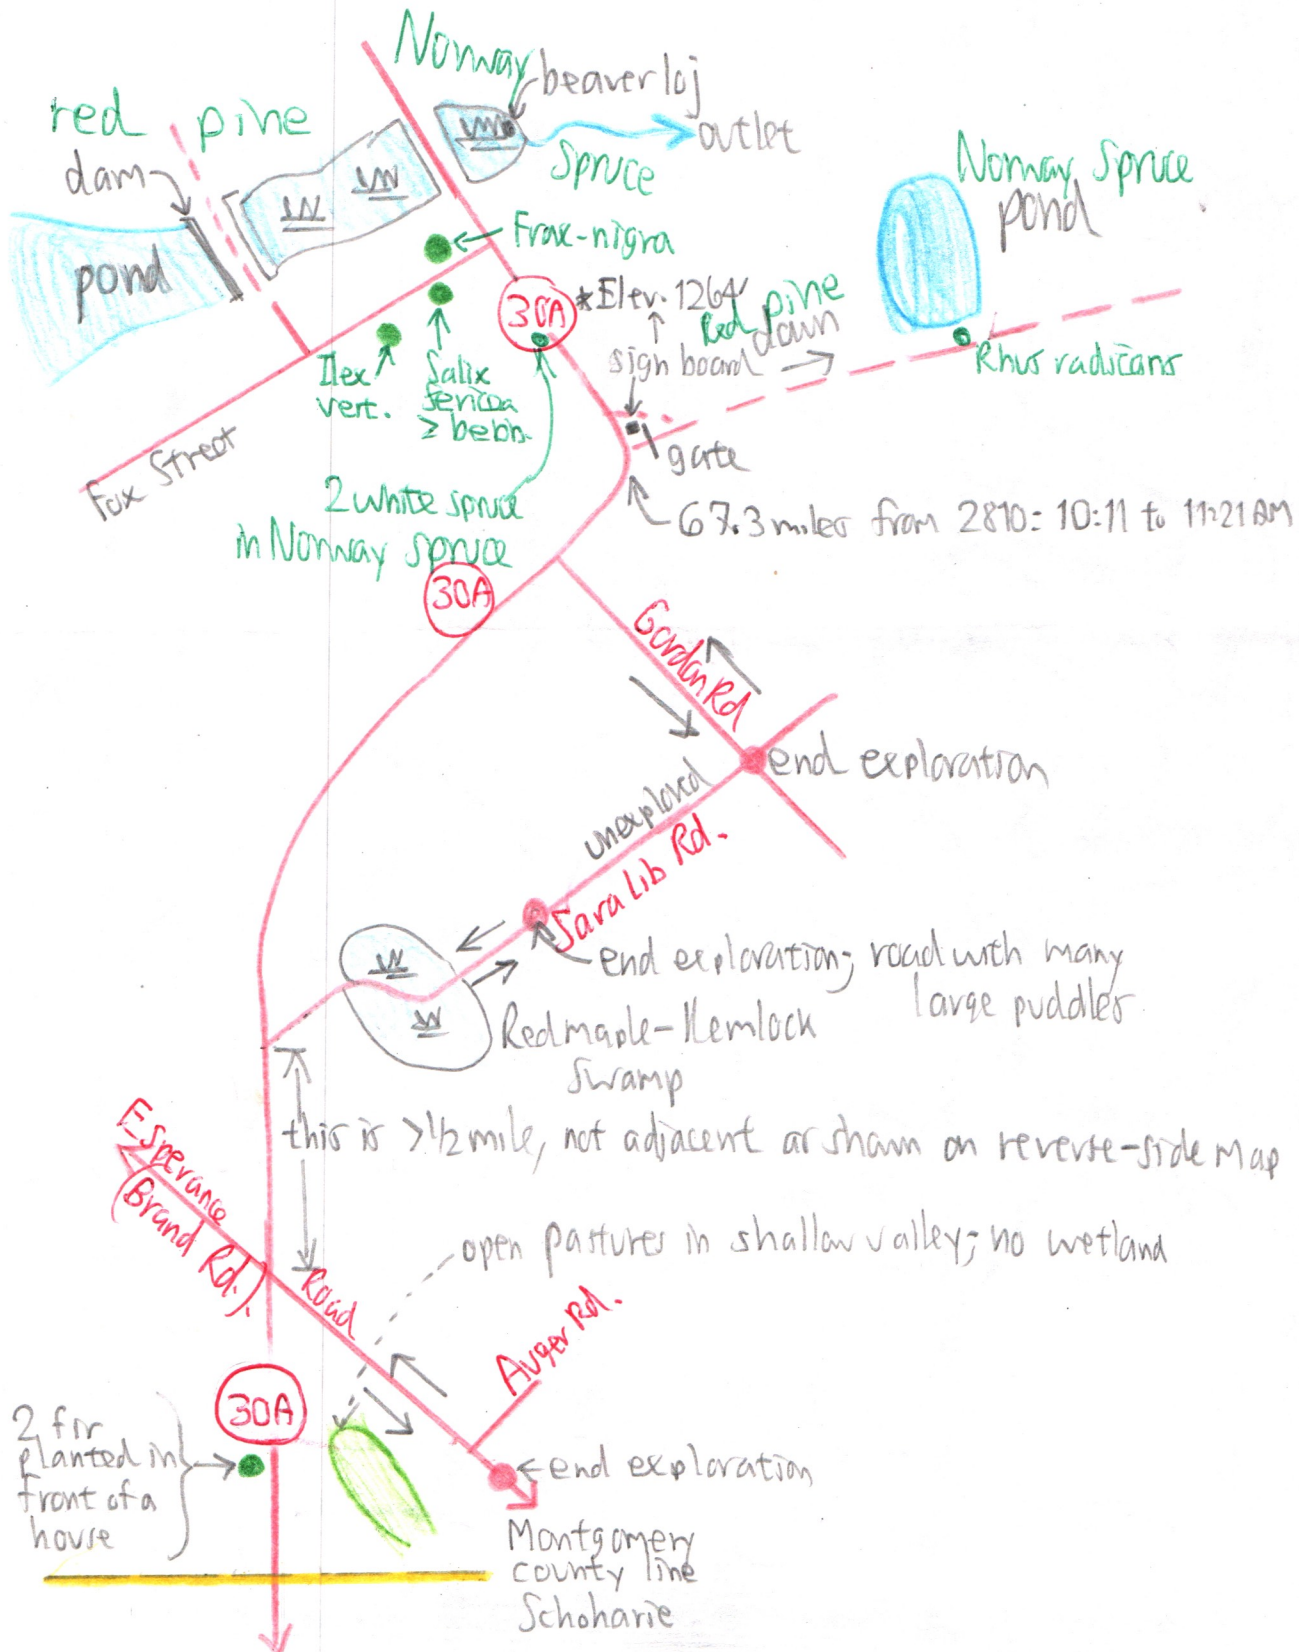 Norway
beaver loj
red pine
outlet
dam
Spruce
Norway Spruce
pond
Frax-nigra
pond
*Elev. 1264'
30A
Red pine
dawn
sign board
Rhus radicans
Ilex
vert.
Salix
sericea
≥ bebb.
gate
Fox Street
2 white spruce
in Norway spruce
67.3 miles from 2810: 10:11 to 11:21 AM
30A
Gordon Rd
end exploration
unexplored
Sara Lib Rd.
end exploration; road with many
large puddles
Red maple-Hemlock
Swamp
this is >1/2 mile, not adjacent as shawn on reverse-side Map
Esperance
(Brand Rd.).
Road
open pastures in shallow valley; no wetland
Auger Rd.
30A
2 fir
planted in
front of a
house
end exploration
Montgomery
county line
Schoharie